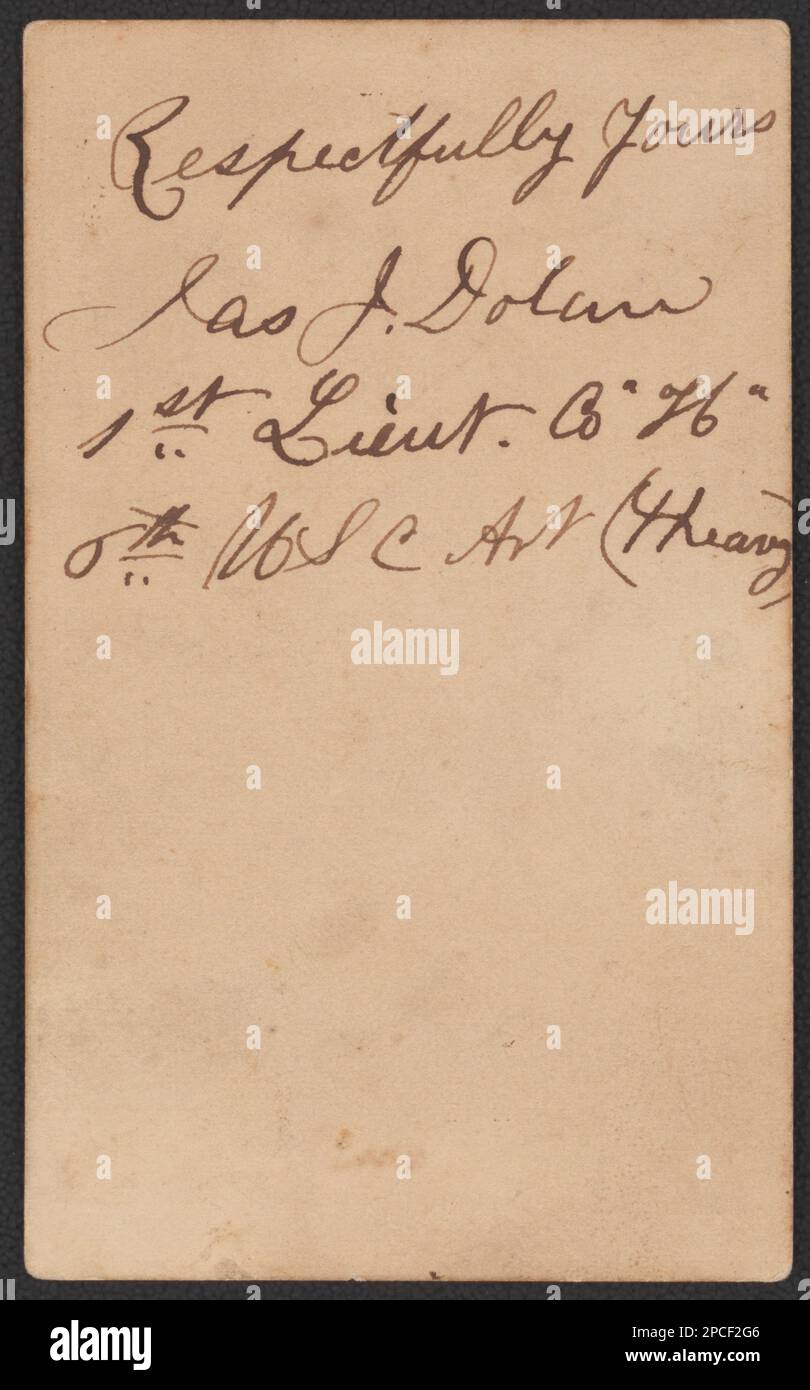 Respectfully Yours
Jas J. Dolan
1st Lieut. Co "H"
6th U S C Art (Heavy)
alamy
Image ID: 2PCF2G6
www.alamy.com